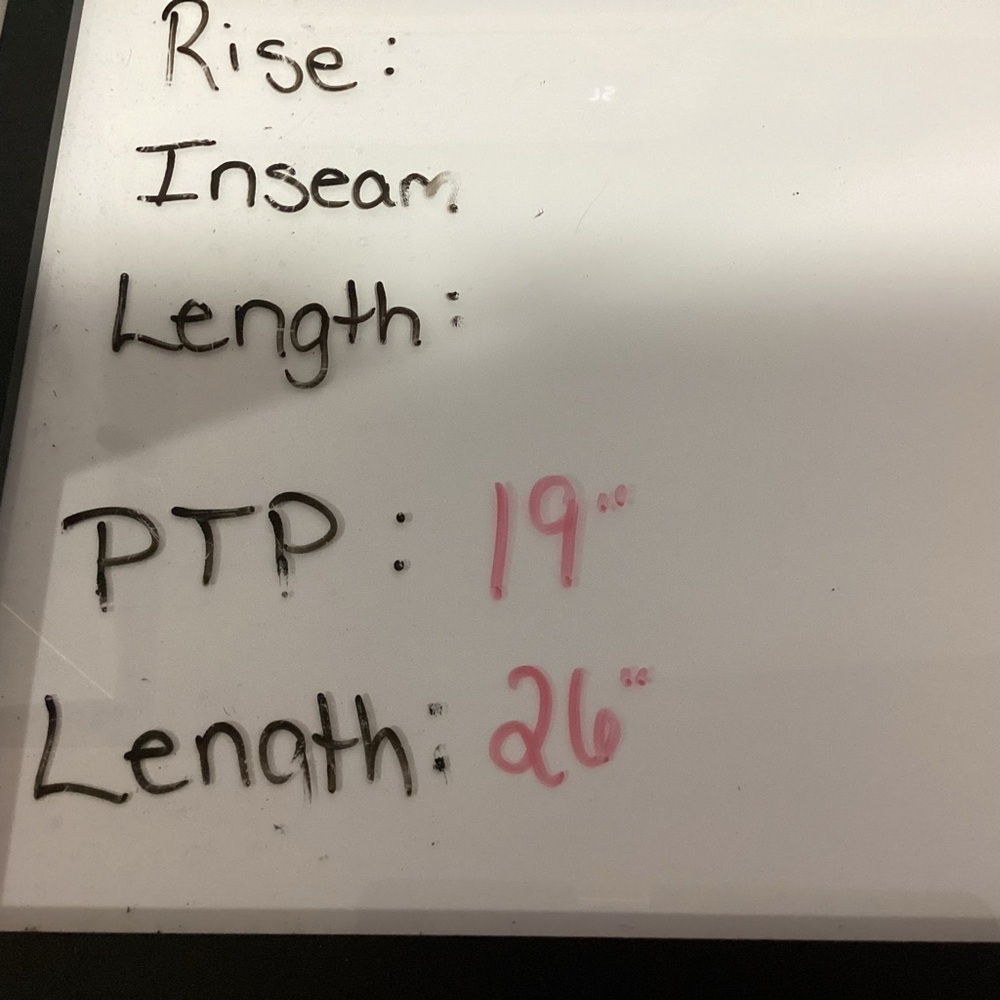 Rise:
Inseam
Length:
PTP: 19"
Length: 26"